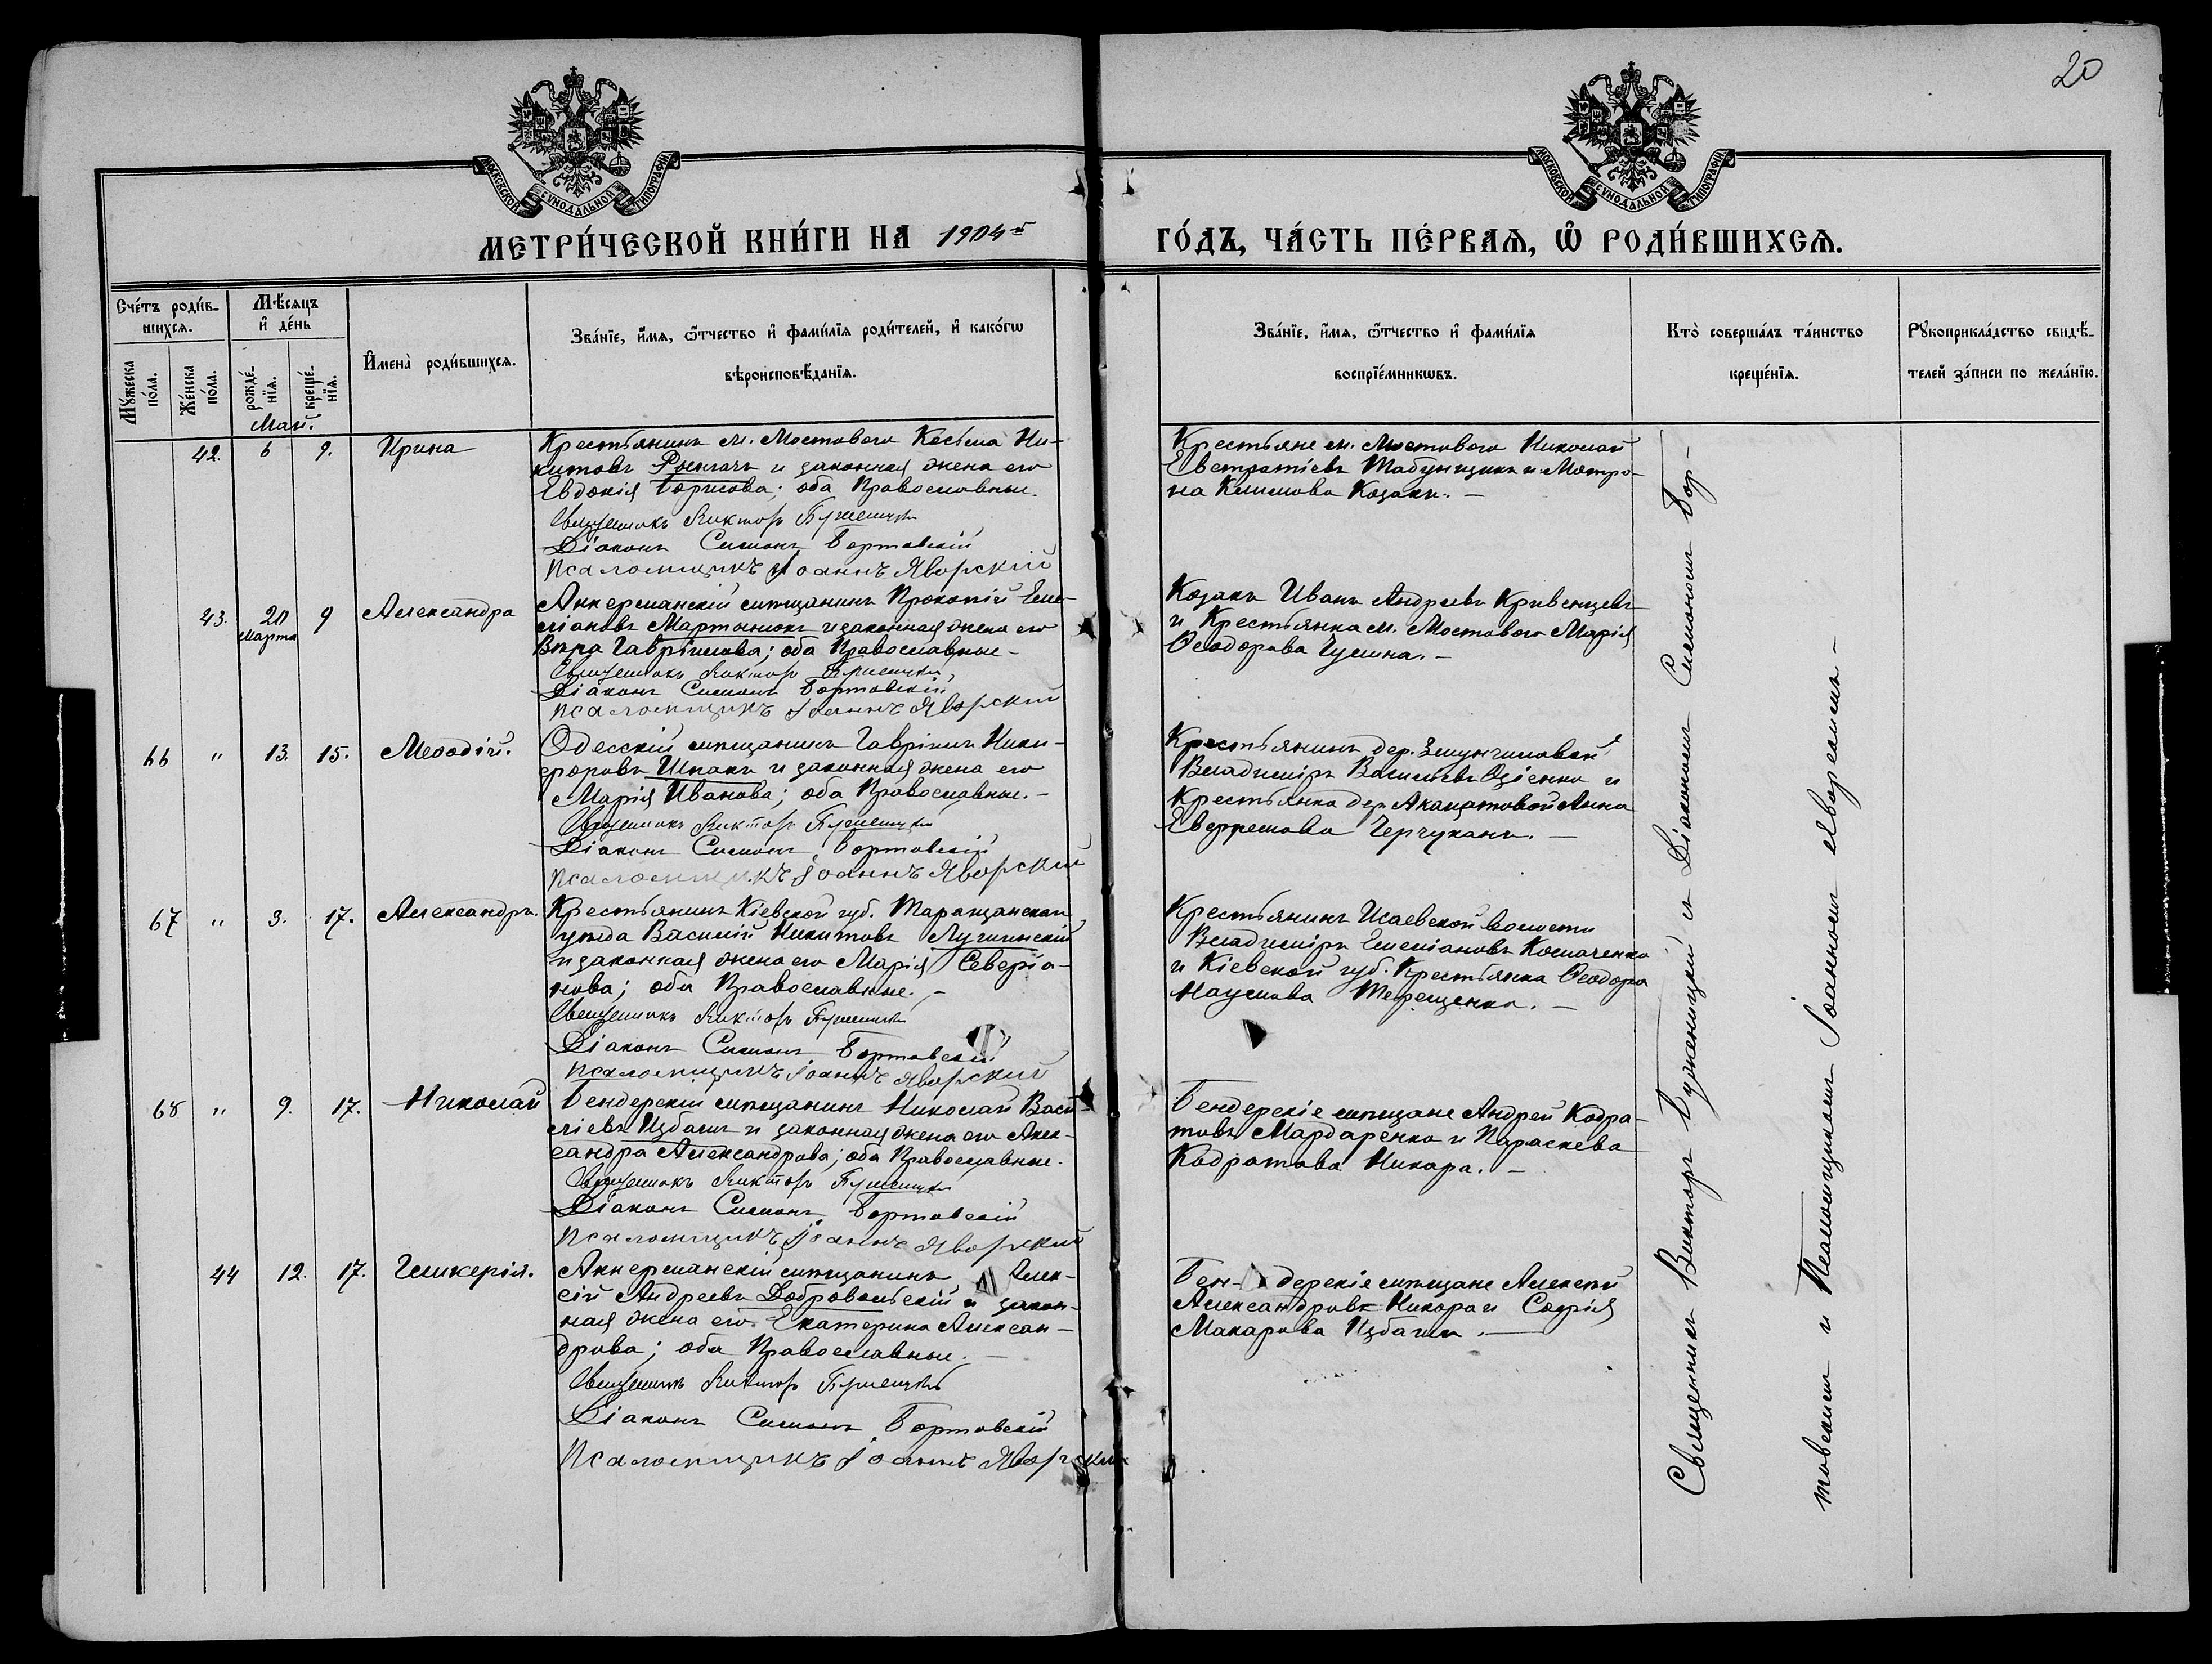 20
МОСКОВСКОЙ СѴНОДАЛЬНОЙ ТИПОГРАФІИ
МОСКОВСКОЙ СѴНОДАЛЬНОЙ ТИПОГРАФІИ
МЕТРИ́ЧЕСКОЙ КНИ́ГИ НА 1904й ГО́ДЪ, ЧА́СТЬ ПЕ́РВАѦ, Ѡ҆ РОДИ́ВШИХСѦ.
Сче́тъ роди́в-
шихсѧ.
Мꙋ́жеска
по́ла.
Же́нска
по́ла.
Мѣ́сѧцъ
и҆ де́нь
рожде́-
нїѧ.
креще́-
нїѧ.
Май.
И҆мена̀ роди́вшихсѧ.
Зва́нїе, и҆́мѧ, ѻ҆́тчество и҆ фами́лїѧ роди́телей, и҆ како́гѡ
вѣроисповѣ́данїѧ.
Зва́нїе, и҆́мѧ, ѻ҆́тчество и҆ фами́лїѧ
воспрїе́мникѡвъ.
Кто̀ соверша́лъ та́инство
креще́нїѧ.
Рꙋкоприкла́дство свидѣ́-
телей за́писи по жела́нїю.
42. 6 9. Ирина
Крестьянинъ м. Мостового Косьма Ни-
китовъ и законная жена его
Евдокія Борисова; оба Православные.
Священникъ Викторъ
Діаконъ Симонъ Бортовскій
Псаломщикъ Іоаннъ Яворскій
Крестьяне м. Мостового Николай
Евстратіевъ Табунщикъ и Матро-
на Климова Козакъ. —
43. 20 Марта 9 Александра
Аккерманскій мѣщанинъ Прокопій Еме-
ліановъ Мартынюкъ и законная жена его
Вѣра Гавріилова; оба Православные —
Священникъ Викторъ
Діаконъ Симонъ Бортовскій
Псаломщикъ Іоаннъ Яворскій
Козакъ Иванъ Андреевъ Кривенцевъ
и Крестьянка м. Мостового Марія
Ѳеодорова —
66 " 13. 15. Меѳодій.
Одесскій мѣщанинъ Гавріилъ Ники-
форовъ Шпакъ и законная жена его
Марія Иванова; оба Православные. —
Священникъ Викторъ
Діаконъ Симонъ Бортовскій
Псаломщикъ Іоаннъ Яворскій
Крестьянинъ дер.
Владиміръ Васильевъ и
Крестьянка дер. Акацатовой Анна
Евфимова Герчуканъ. —
67 " 3. 17. Александръ.
Крестьянинъ Кіевской губ. Таращанскаго
уѣзда Василій Никитовъ Лучинскій
и законная жена его Марія Северіа-
нова; оба Православные. —
Священникъ Викторъ
Діаконъ Симонъ Бортовскій
Псаломщикъ Іоаннъ Яворскій
Крестьянинъ Исаевской волости
Владиміръ Емеліановъ Космаченко
и Кіевской губ. Крестьянка Ѳеодора
Наумова Терещенко. —
68 " 9. 17. Николай
Бендерскій мѣщанинъ Николай Васи-
ліевъ Избашъ и законная жена его Алек-
сандра Александрова; оба Православные.
Священникъ Викторъ
Діаконъ Симонъ Бортовскій
Псаломщикъ Іоаннъ Яворскій
Бендерскіе мѣщане Андрей Кодра-
товъ Мардаренко и Параскева
Кодратова Никора. —
44 12. 17. Гликерія.
Аккерманскій мѣщанинъ Алек-
сій Андреевъ Добровольскій и закон-
ная жена его Екатерина Алексан-
дрова; оба Православные. —
Священникъ Викторъ
Діаконъ Симонъ Бортовскій
Псаломщикъ Іоаннъ Яворскій
Бен-дерскіе мѣщане Алексѣй
Александровъ Никора и Софія
Макарова Избашъ. —
Священникъ Викторъ Буженицкій съ Діакономъ Симономъ Бор-
товскимъ и Псаломщикомъ Іоанномъ Яворскимъ —